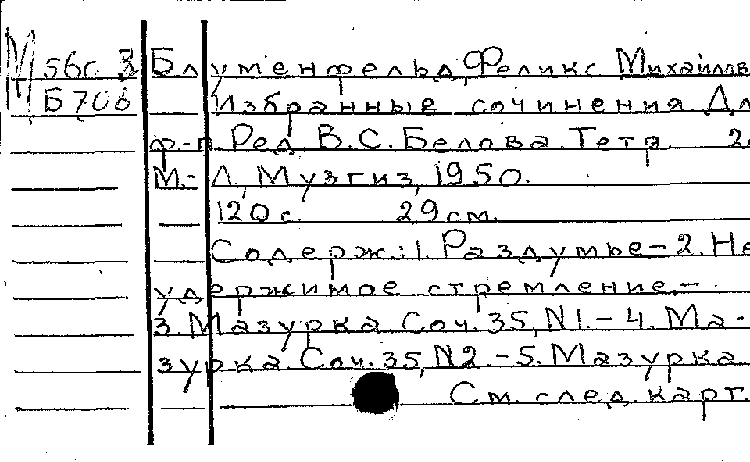 М 56г. 3 Блуменфельд, Феликс Михайлов
Б 706 Избранные сочинения Дл
ф-п. Ред. В.С. Белова. Тетр. 2.
М.-Л., Музгиз, 1950.
120 с. 29 см.
Содерж.: 1. Раздумье – 2. Не
удержимое стремление. –
3. Мазурка. Соч. 35, N1. – 4. Ма-
зурка. Соч. 35, N2. – 5. Мазурка.
См. след. карт.